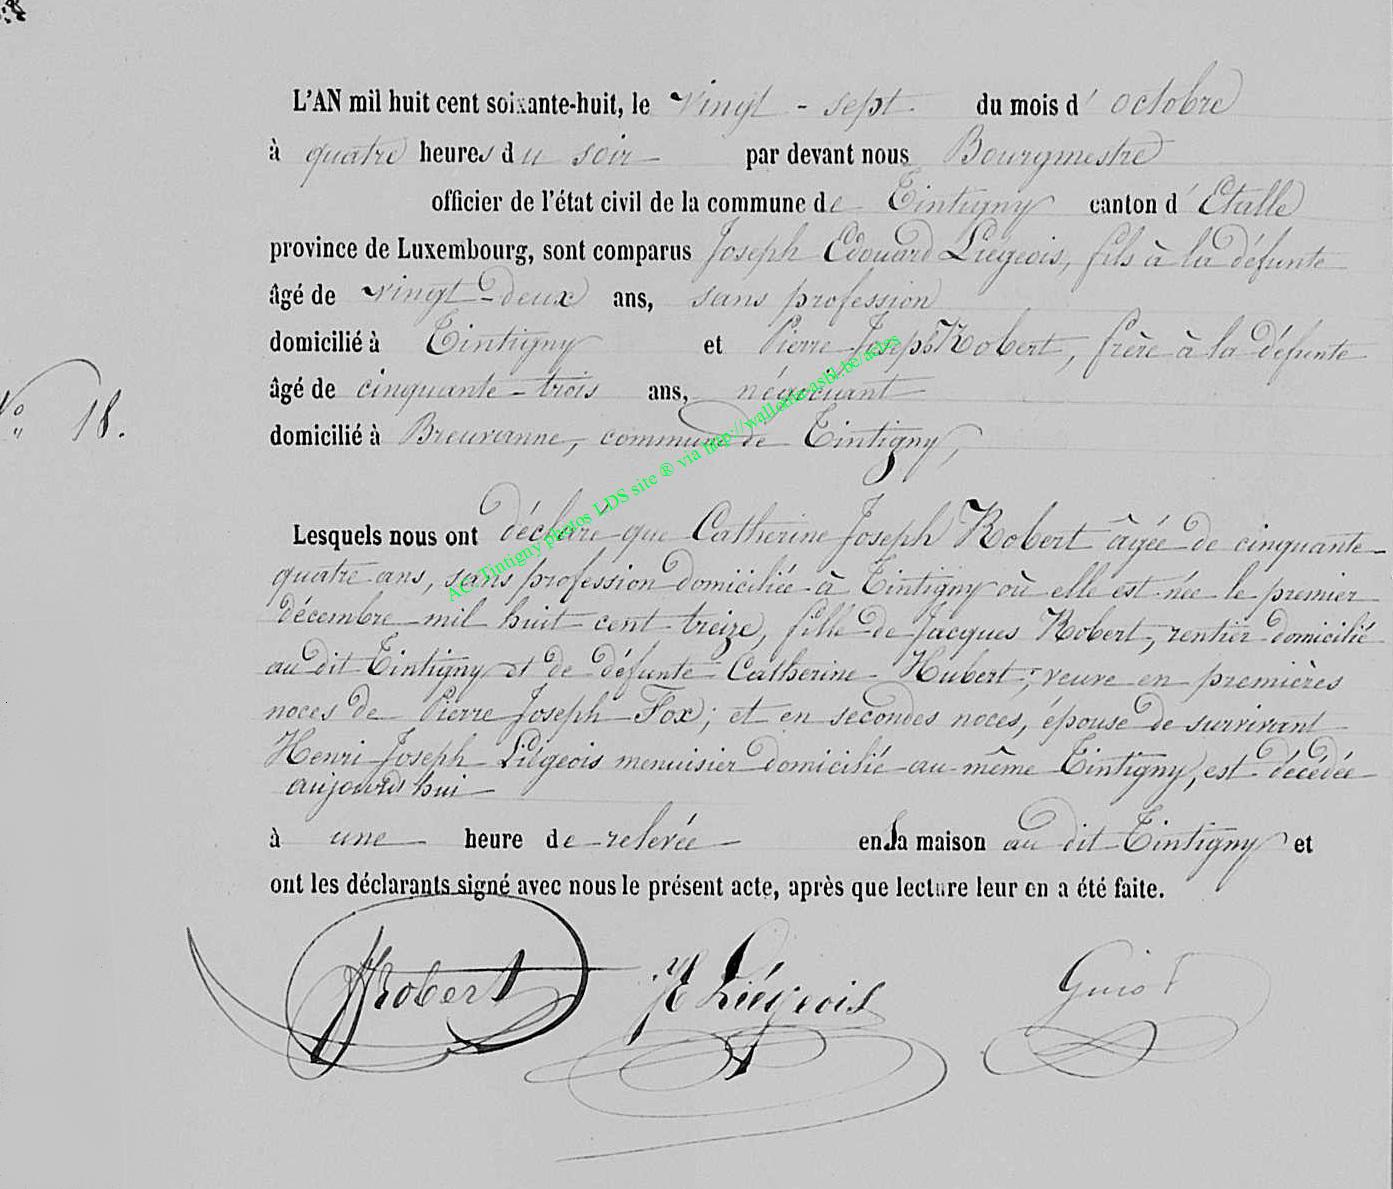 L'AN mil huit cent soixante-huit, le vingt-sept du mois d'octobre
à quatre heures du soir par devant nous Bourgmestre
officier de l'état civil de la commune de Tintigny canton d'Etalle
province de Luxembourg, sont comparus Joseph Edouard Liégeois, fils à la défunte
âgé de vingt-deux ans, sans profession
domicilié à Tintigny et Pierre Joseph Robert, frère à la défunte
âgé de cinquante-trois ans, négociant
N° 18.
domicilié à Breuvanne, commune de Tintigny,
AC Tintigny photos LDS site ® via http://wallonia-asbl.be/actes
Lesquels nous ont déclaré que Catherine Joseph Robert âgée de cinquante-
quatre ans, sans profession domiciliée à Tintigny où elle est née le premier
décembre mil huit cent treize, fille de Jacques Robert, rentier domicilié
au dit Tintigny et de défunte Catherine Hubert; veuve en premières
noces de Pierre Joseph Fox; et en secondes noces, épouse de survivant
Henri Joseph Liégeois menuisier domicilié au même Tintigny, est décédée
aujourd'hui
à une heure de relevée en la maison au dit Tintigny et
ont les déclarants signé avec nous le présent acte, après que lecture leur en a été faite.
Robert Liégeois Guiot